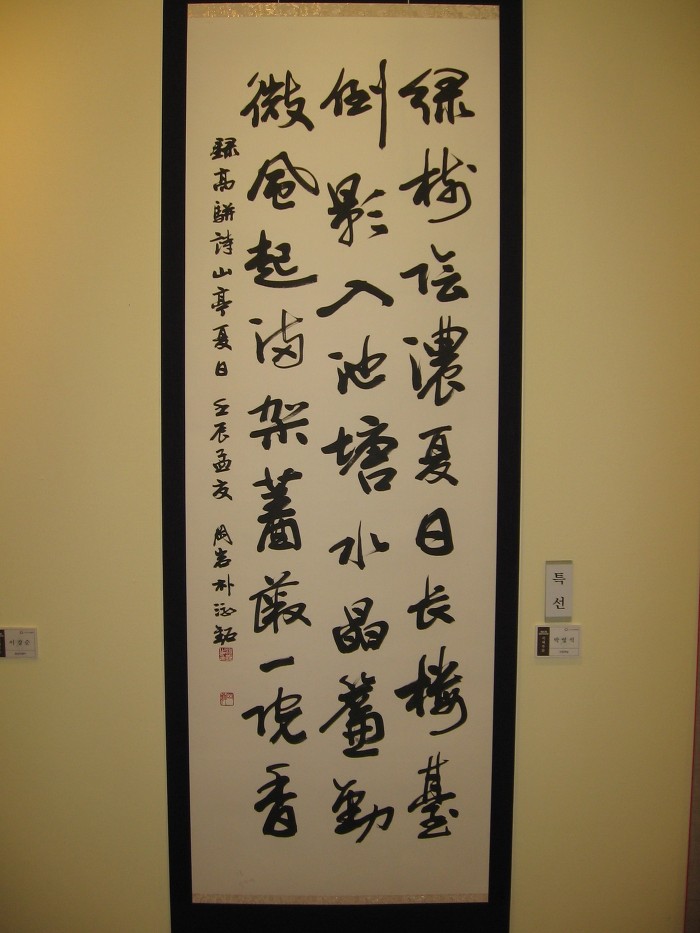 綠樹陰濃夏日長樓臺
倒影入池塘水晶簾動
微風起滿架薔薇一院香
錄高騈詩山亭夏日 壬辰孟夏 岡岩朴
특선